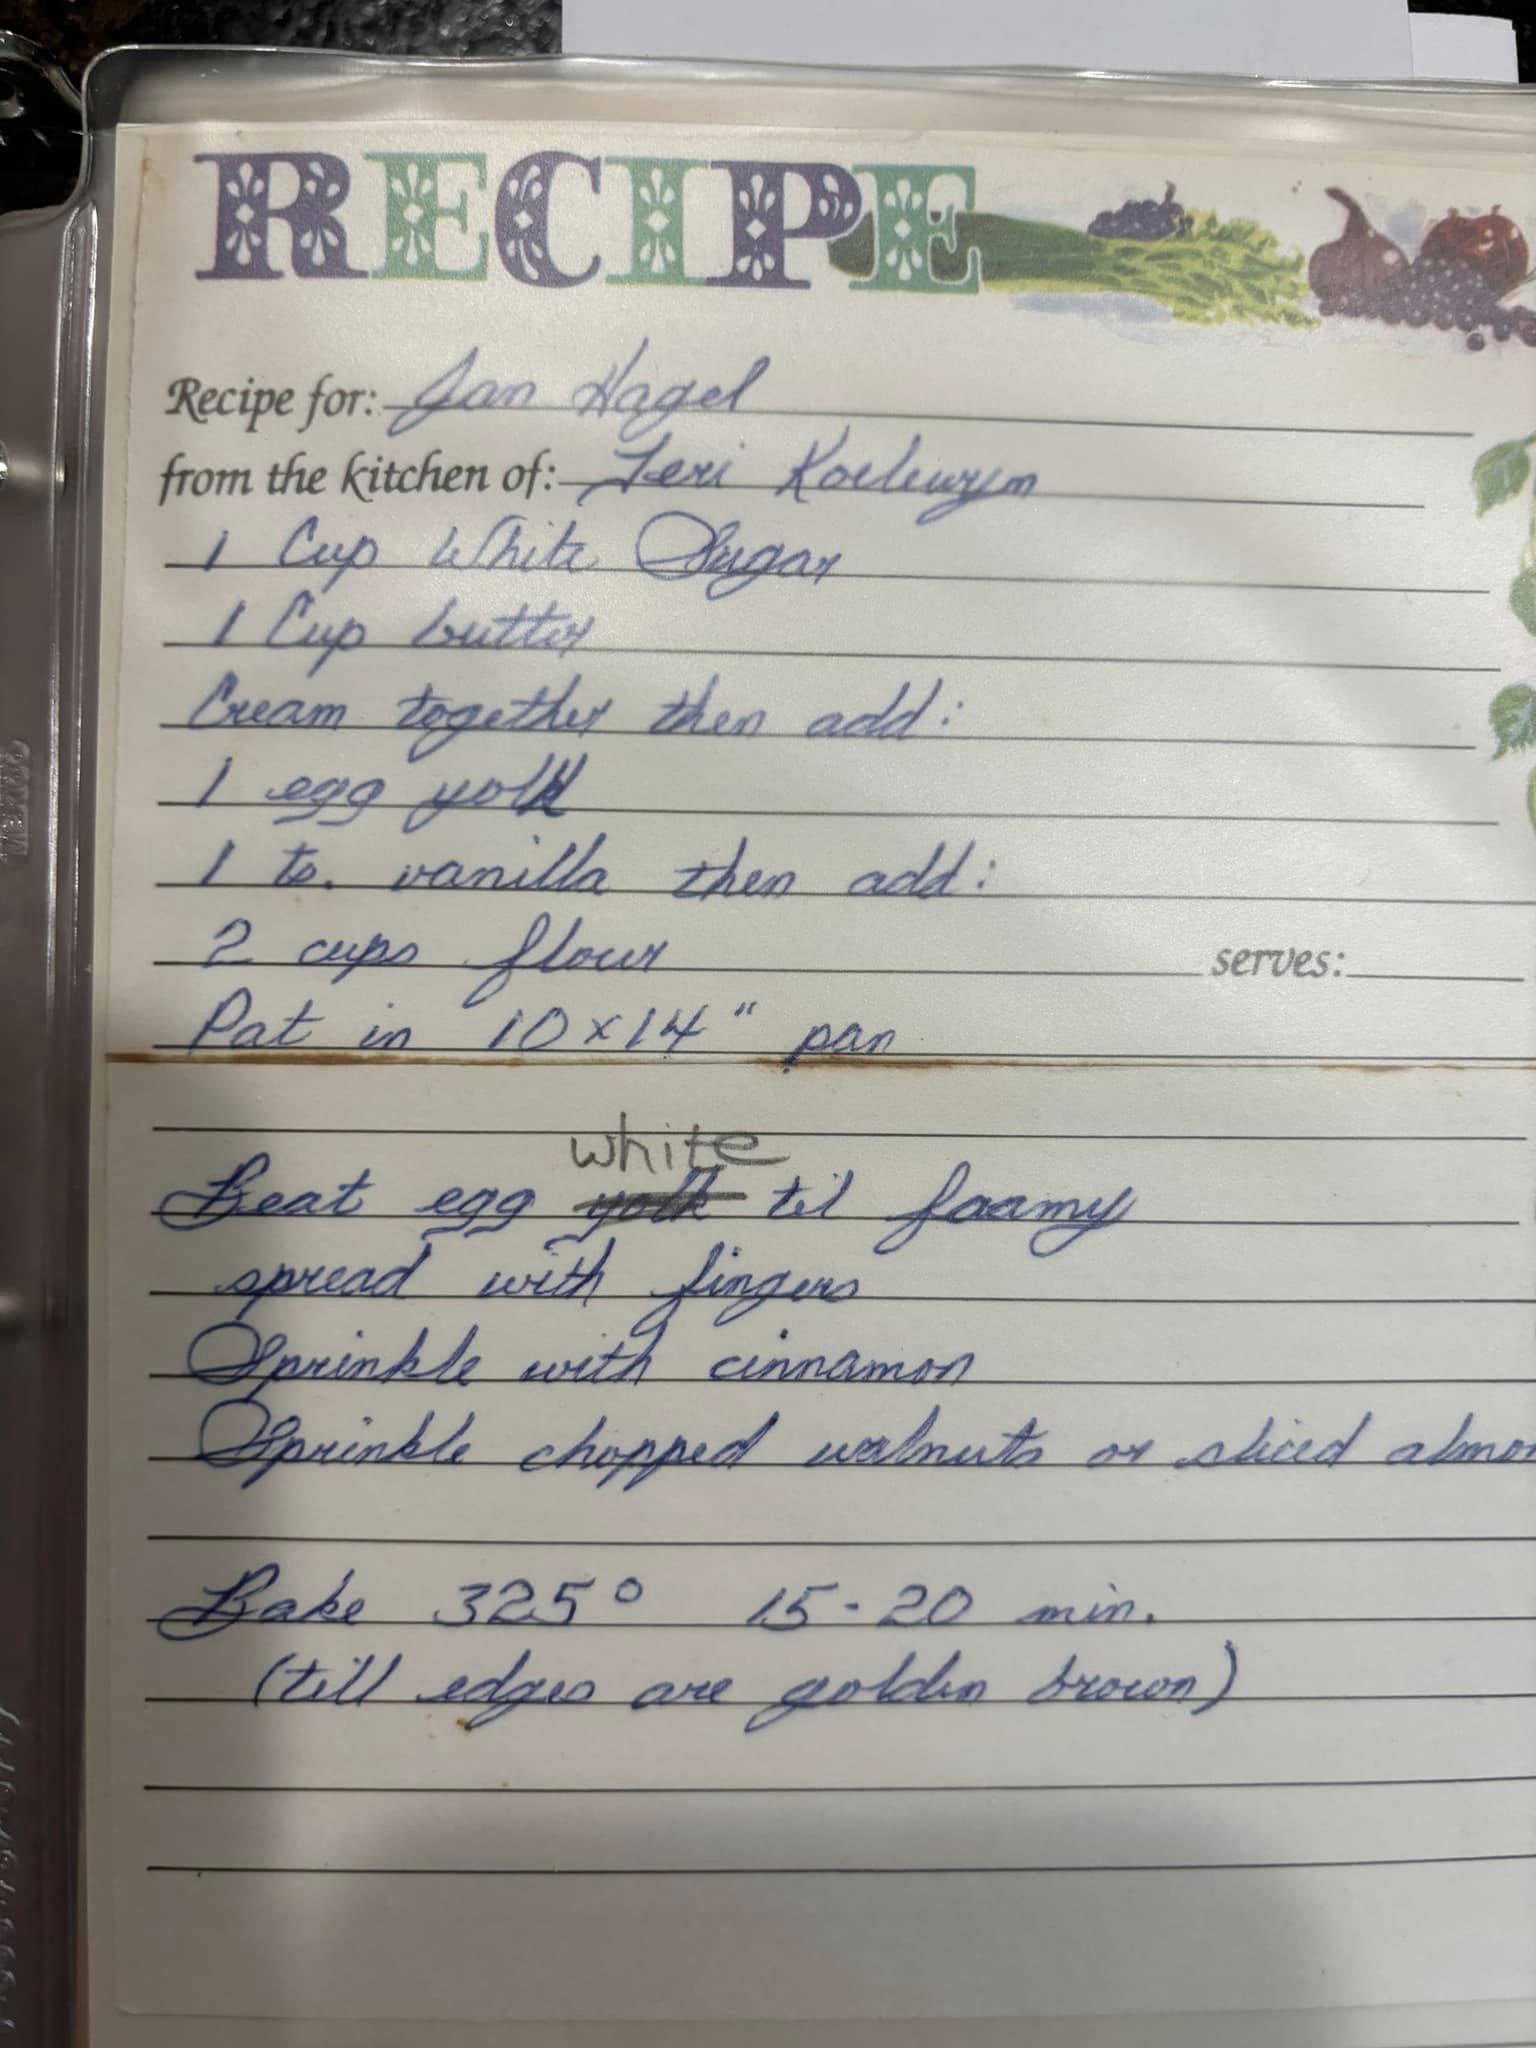 RECIPE
Recipe for: Jan Hagel
from the kitchen of: Teri Koelewyn
1 Cup White Sugar
1 Cup butter
Cream together then add:
1 egg yolk
1 ts. vanilla then add:
2 cups flour
serves:
Pat in 10x14" pan
white
Beat egg yolk til foamy
spread with fingers
Sprinkle with cinnamon
Sprinkle chopped walnuts or sliced almon
Bake 325° 15-20 min.
(till edges are golden brown)